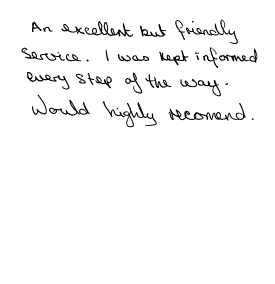 An excellent but friendly
Service. I was kept informed
every step of the way.
Would highly recomend.